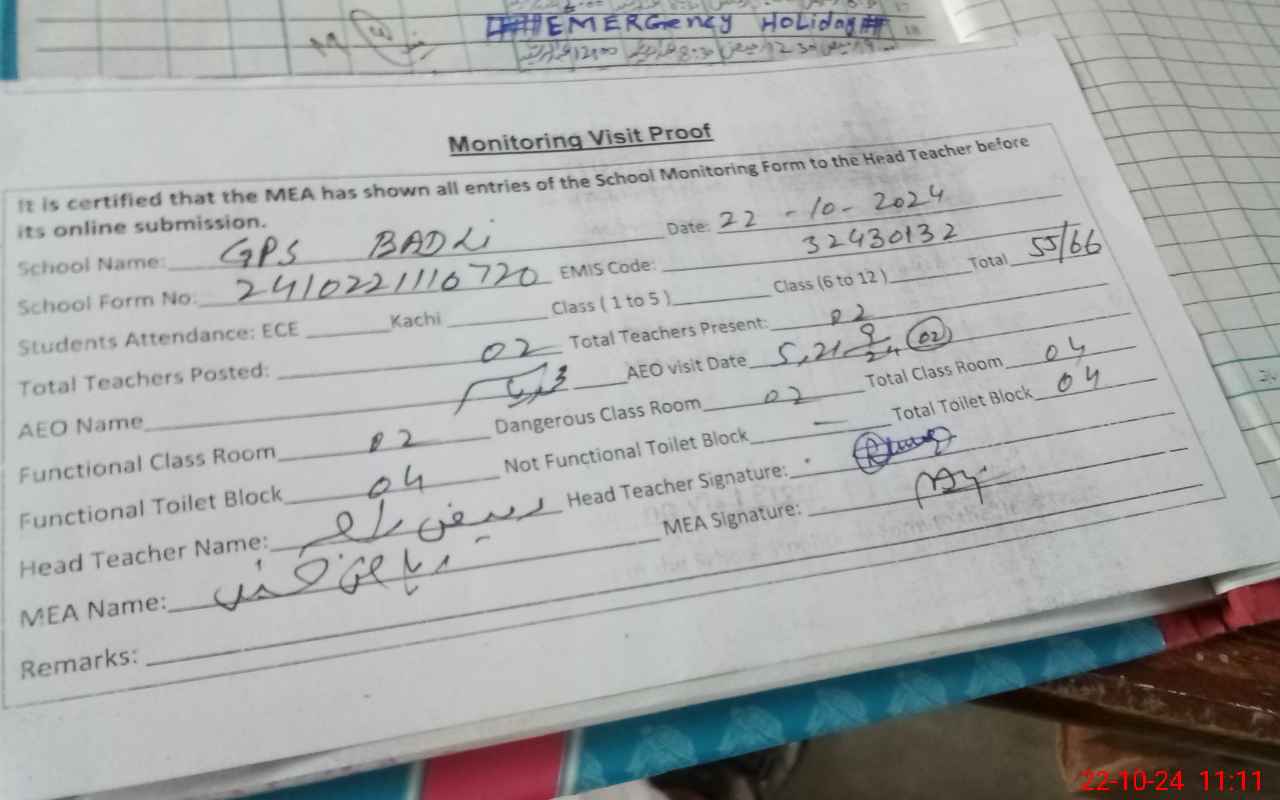 ##EMERGency HoLiday##
Monitoring Visit Proof
It is certified that the MEA has shown all entries of the School Monitoring Form to the Head Teacher before
its online submission.
School Name: GPS BADLi Date: 22-10-2024
School Form No: 2410221116720 EMIS Code: 32430132
Students Attendance: ECE Kachi Class ( 1 to 5 ) Class (6 to 12 ) Total 55/66
Total Teachers Posted: 02 Total Teachers Present: 02
AEO Name AEO visit Date 5,21 9/24 (02)
Functional Class Room 02 Dangerous Class Room 02 Total Class Room 04
Functional Toilet Block 04 Not Functional Toilet Block — Total Toilet Block 04
Head Teacher Name: Head Teacher Signature:
MEA Name: MEA Signature:
Remarks:
22-10-24 11:11